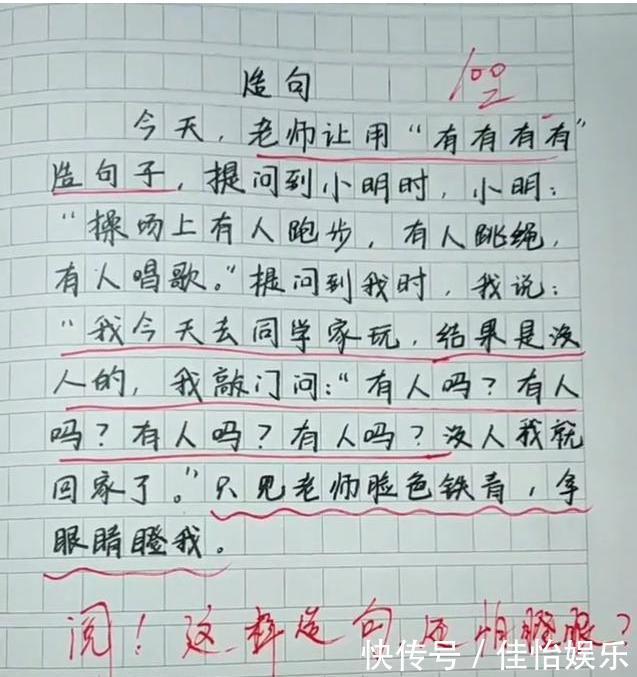 造句
100
今天，老师让用“有有有有”
造句子，提问到小明时，小明：
“操场上有人跑步，有人跳绳，
有人唱歌。”提问到我时，我说：
“我今天去同学家玩，结果是没
人的，我敲门问：“有人吗？有人
吗？有人吗？有人吗？没人我就
回家了。”只见老师脸色铁青，拿
眼睛瞪我。
阅！这样造句，还怕瞪眼？
快传号 / 佳怡娱乐